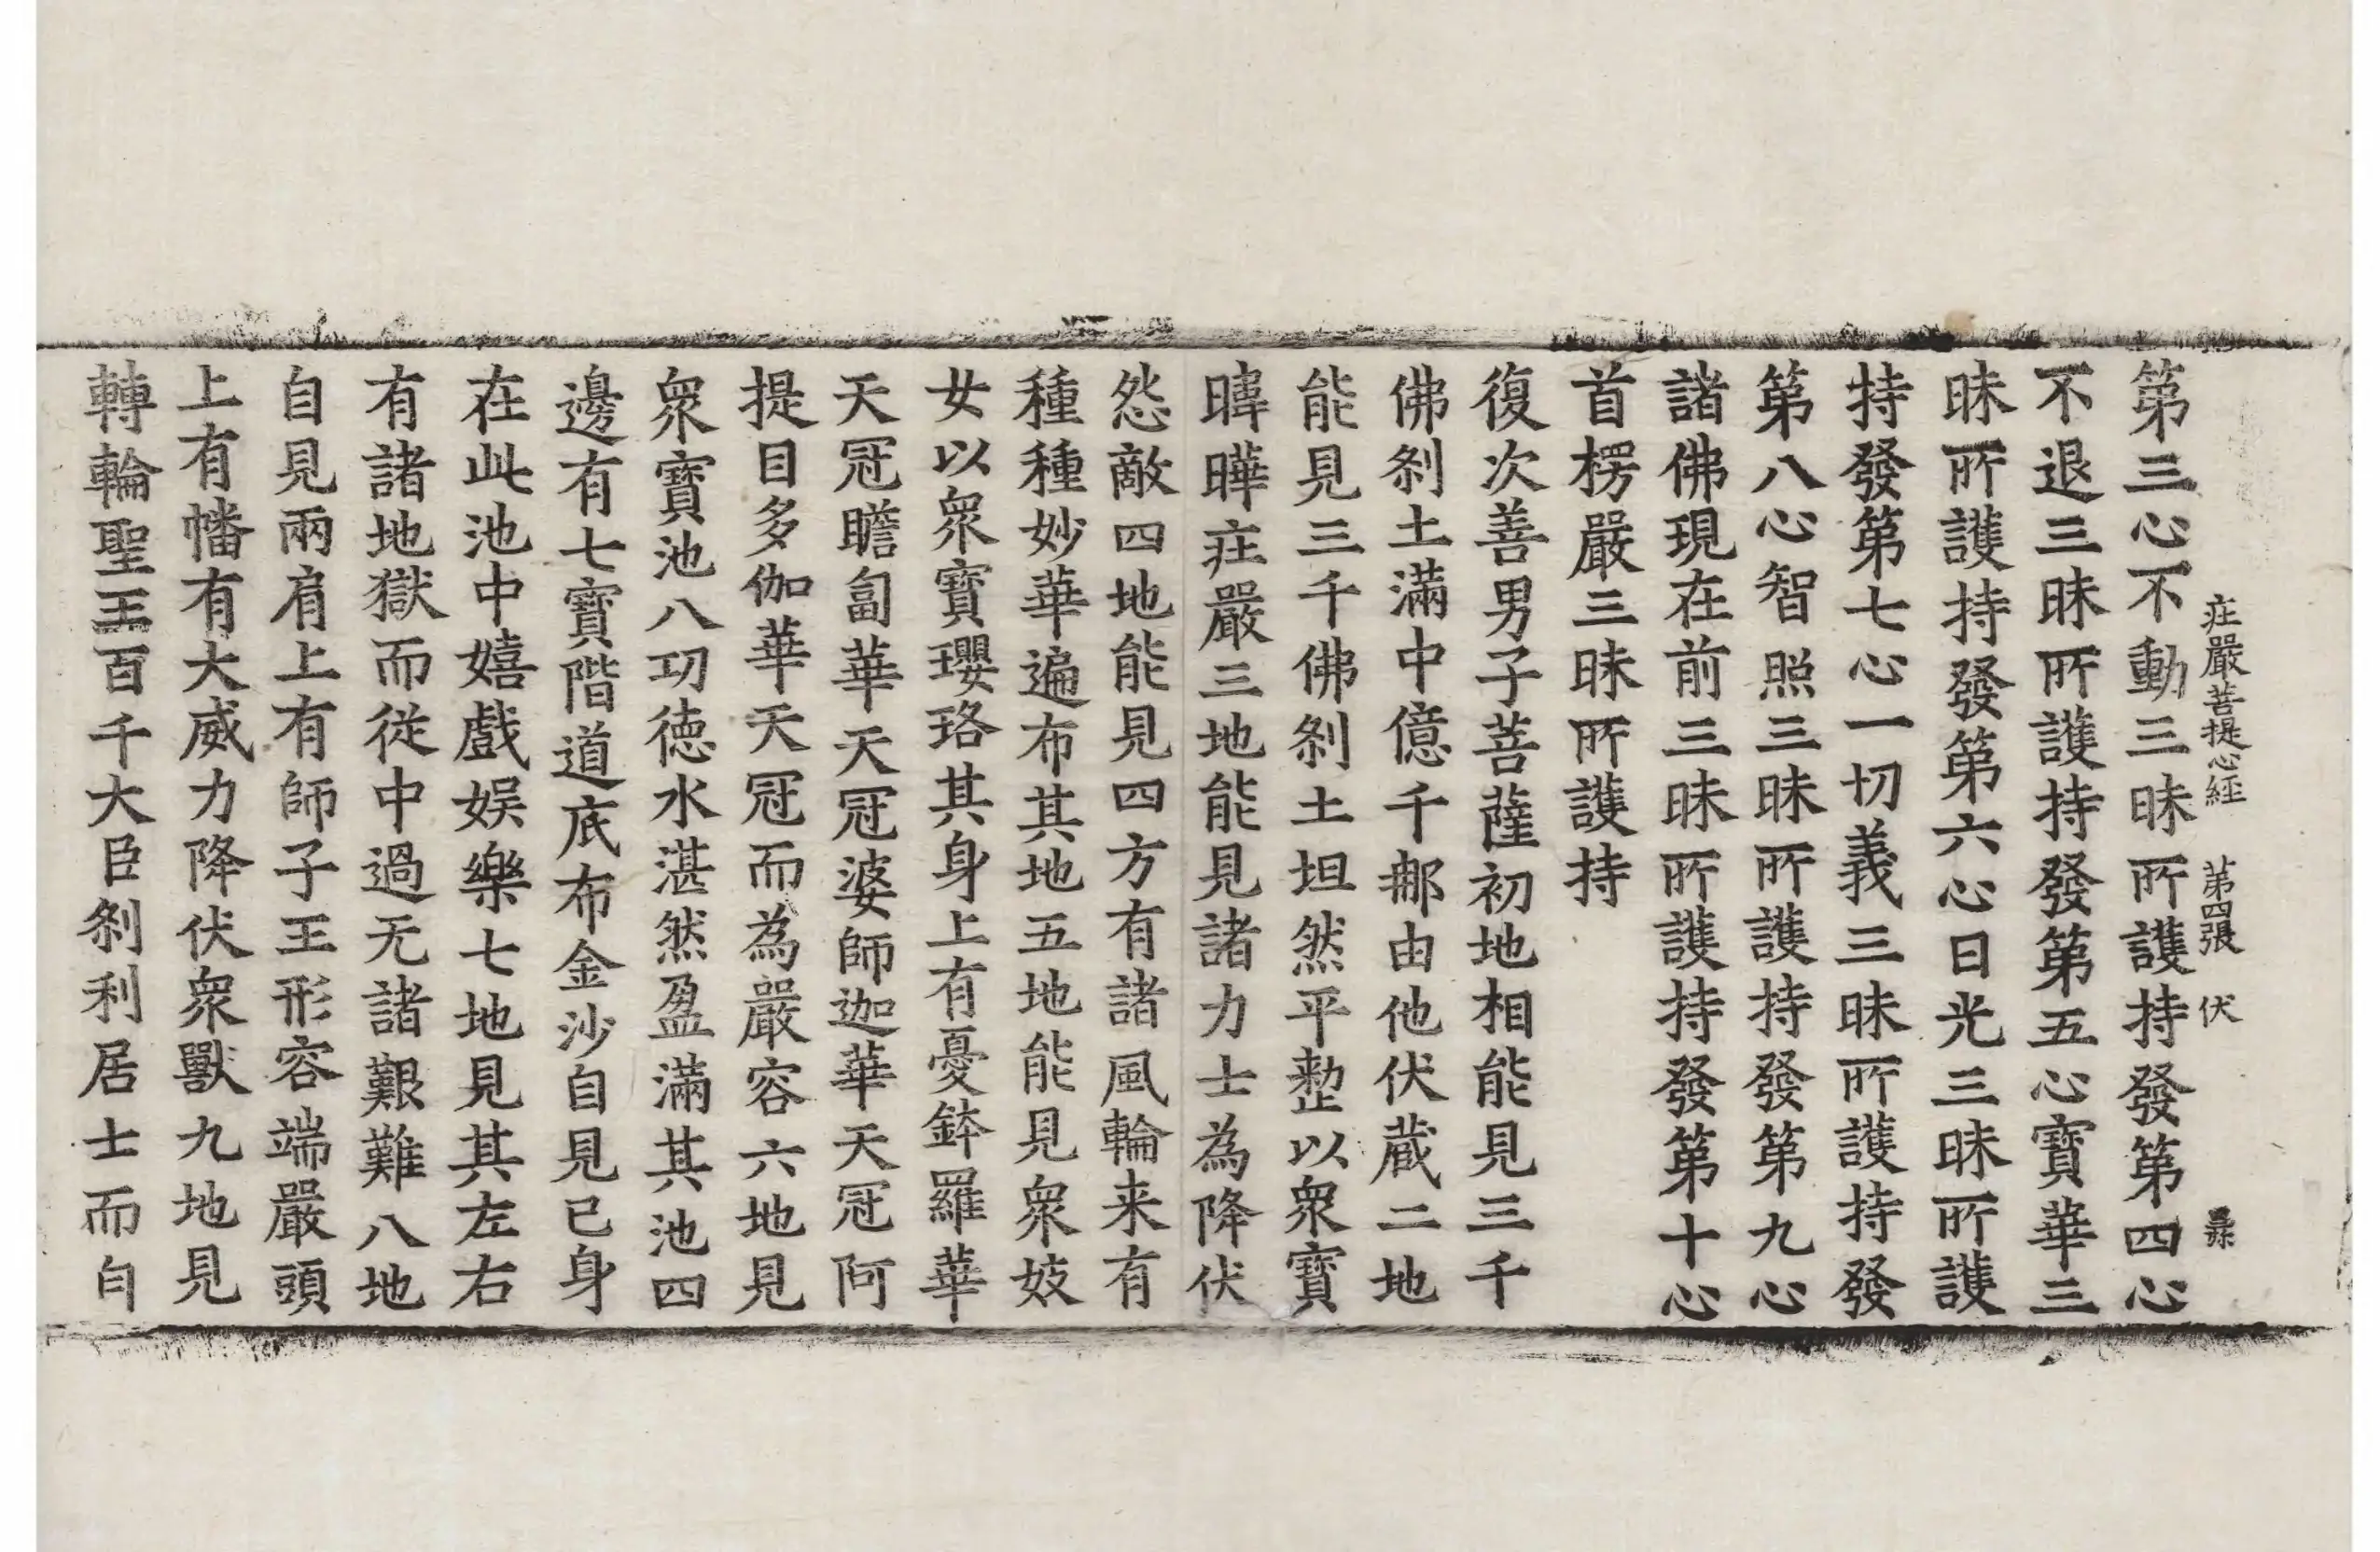 疘嚴菩提心經 第四張 伏
第三心不動三昧所護持發第四心
不退三昧所護持發第五心寶華三
昧所護持發第六心日光三昧所護
持發第七心一切義三昧所護持發
第八心智照三昧所護持發第九心
諸佛現在前三昧所護持發第十心
首楞嚴三昧所護持
復次善男子菩薩初地相能見三千
佛剎土滿中億千那由他伏蔵二地
能見三千佛剎土坦然平整以衆寶
暐曄疘嚴三地能見諸力士為降伏
怨敵四地能見四方有諸風輪来有
種種妙華遍布其地五地能見衆妓
女以衆寶瓔珞其身上有憂鉢羅華
天冠瞻匐華天冠婆師迦華天冠阿
提目多伽華天冠而為嚴容六地見
衆寶池八㓛德水湛然盈滿其池四
邊有七寶階道底布金沙自見已身
在此池中嬉戲娛樂七地見其左右
有諸地獄而従中過无諸艱難八地
自見兩肩上有師子王形容端嚴頭
上有幡有大威力降伏衆獸九地見
轉輪聖王百千大臣剎利居士而自